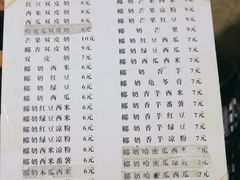 西米双皮奶 8元
哈密瓜双皮奶 8元
芒果双皮奶 9元
椰香双皮奶 8元
双皮奶 7元
椰奶西米 6元
椰奶红豆 6元
椰奶绿豆 6元
椰奶凉粉 6元
椰奶西瓜 6元
椰奶红豆西米 6元
椰奶绿豆西米 6元
椰奶红豆凉粉 6元
椰奶绿豆凉粉 6元
椰奶西米凉粉 6元
椰奶西米番薯 6元
椰奶木瓜西米 6元
椰奶芒果
椰奶红豆西瓜 7元
椰奶绿豆西瓜 7元
椰奶香芋 7元
椰奶龟苓膏 7元
椰奶香芋西米 7元
椰奶香芋番薯 7元
椰奶香芋西瓜 7元
椰奶香芋红豆 7元
椰奶香芋绿豆 7元
椰奶香芋凉粉 7元
椰奶哈密瓜西米 7元
椰奶哈密瓜凉粉 7元
椰奶哈密瓜西瓜 7元